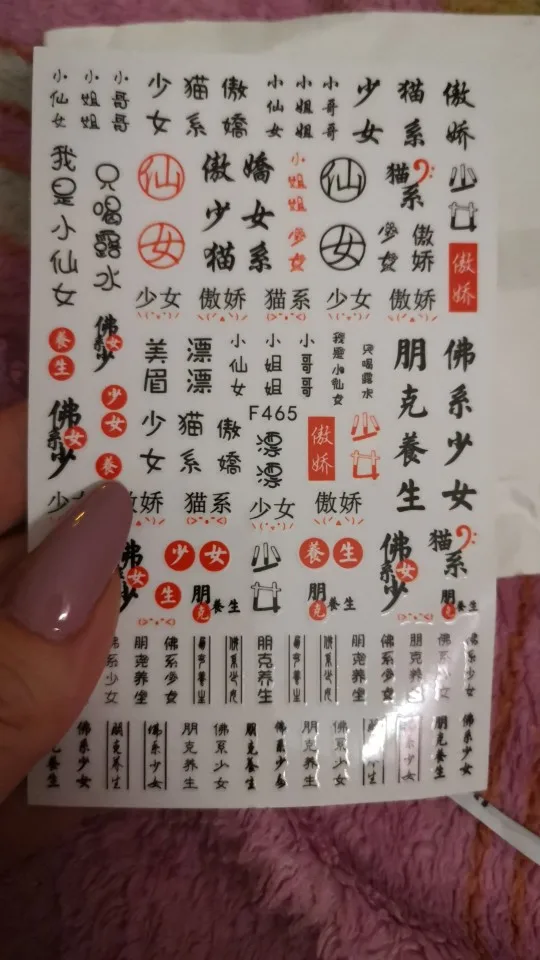 小仙女
小姐姐
小哥哥
少女
猫系
傲嬌
小仙女
小姐姐
小哥哥
少女
猫系
傲娇
我是小仙女
只喝露水
仙女
傲嬌
少女
猫系
小姐姐
少女
仙女
猫系
少女
傲娇
少女
傲娇
少女
傲娇
猫系
少女
傲娇
養生
佛系少女
美眉
漂漂
小仙女
小姐姐
小哥哥
我是小仙女
只喝露水
朋克養生
佛系少女
少女
佛系少女
養
少女
猫系
傲嬌
F465
漂漂
傲娇
少女
少女
傲娇
猫系
少女
傲娇
佛系少女
少女
生
朋克養生
少女
養生
朋克養生
佛系少女
猫系
朋克養生
佛系少女
朋克养生
佛系少女
朋克养生
佛系少女
朋克养生
朋克养生
佛系少女
朋克养生
佛系少女
朋克养生
佛系少女
克養生
佛系少女
朋克养生
佛系少女
朋克养生
佛系少女
朋克養生
佛系少女
朋克养生
佛系少女
朋克养生
佛系少女
朋克養生
佛系少女